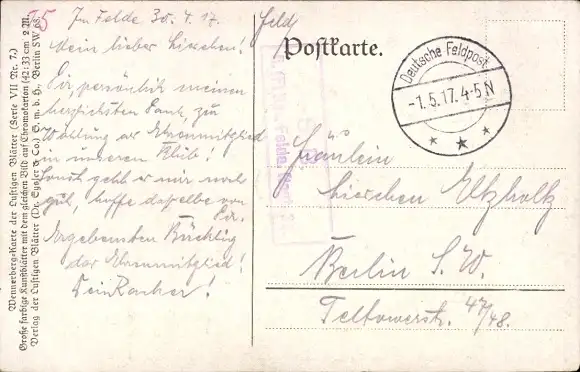 55
Im Felde 30.4.17.
Mein lieber Lieschen!
Dir, persönlich meinen
herzlichsten Dank, zu
Wahlung als Ehrenmitglied
in unseren Klub!
Sonst geht es mir noch
gut, hoffe dasselbe von
Dir.
Ergebensten Bückling
das Ehrenmitglied!
Dein
Wennerberg-Karte der Lustigen Blätter (Serie VII Nr. 7.)
Große farbige Kunstblätter mit dem gleichen Bild auf Chromokarton (42:33 cm 2 M.)
Verlag der Lustigen Blätter (Dr. Eysler & Co.) G. m. b. H., Berlin SW 68.
Feld
Postkarte.
Deutsche Feldpost
-1.5.17.4-5N
Fräulein
Lieschen Etzholtz
Berlin S.W.
Teltowerstr. 47/48.